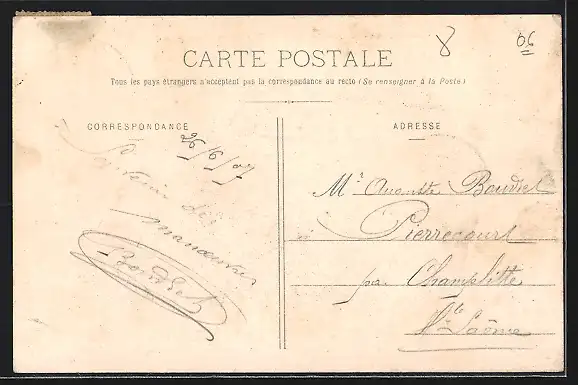 8
06
CARTE POSTALE
Tous les pays étrangers n'acceptent pas la correspondance au recto (Se renseigner à la Poste)
CORRESPONDANCE
ADRESSE
26/6/07
Souvenir des
manoeuvres
Boudret
Mr Auguste Boudret
Pierrecourt
par Champlitte
Hte Saône